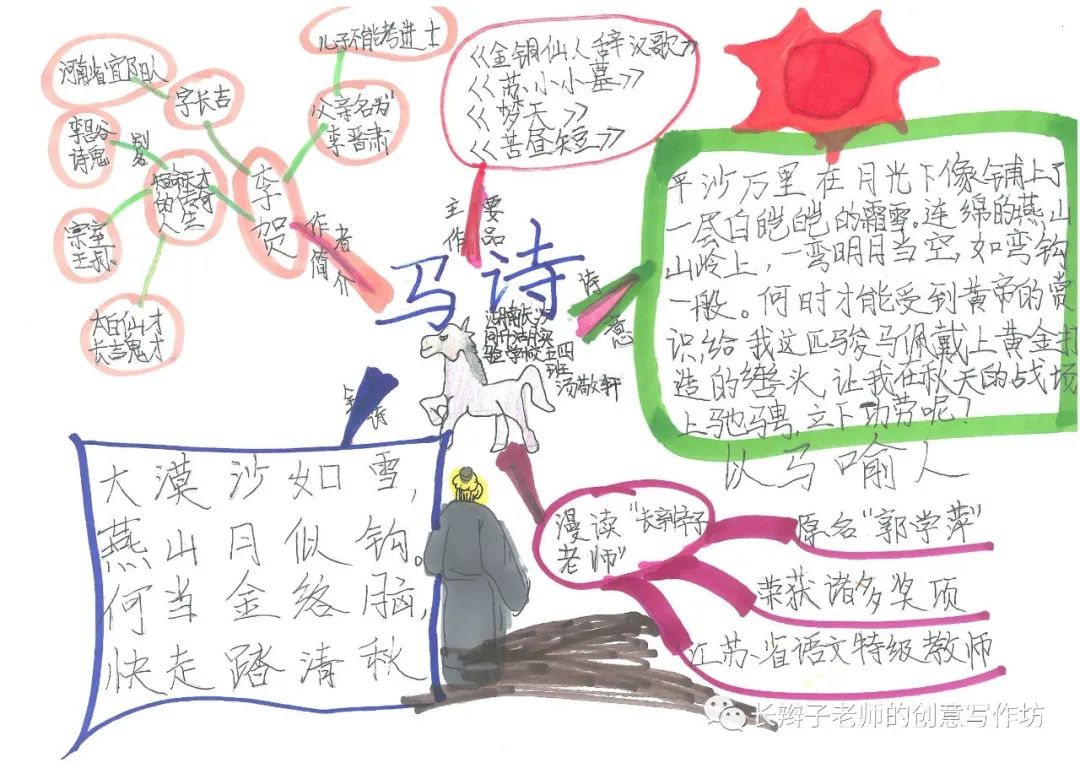 马诗
作者简介
李贺
字长吉
河南省宜阳人
父亲名为"
李晋肃
儿子不能考进士
短暂才
的传奇
人生
别名
李昌谷
诗鬼
宗室
王孙
太白仙才
长吉鬼才
主要
作品
《金铜仙人辞汉歌》
《苏小小墓》
《梦天》
《苦昼短》
诗意
平沙万里在月光下像铺上了
一层白皑皑的霜雪。连绵的燕山
山岭上，一弯明月当空，如弯钩
一般。何时才能受到黄帝的赏
识给我这匹骏马佩戴上黄金打
造的辔头，让我在秋天的战场
上驰骋，立下功劳呢？
以马喻人
湖南长沙
验学校五四
班
汤敬轩
大漠沙如雪，
燕山月似钩。
何当金络脑，
快走踏清秋
漫读"长辫子
老师"
原名"郭学萍"
荣获诸多奖项
江苏省语文特级教师
长辫子老师的创意写作坊